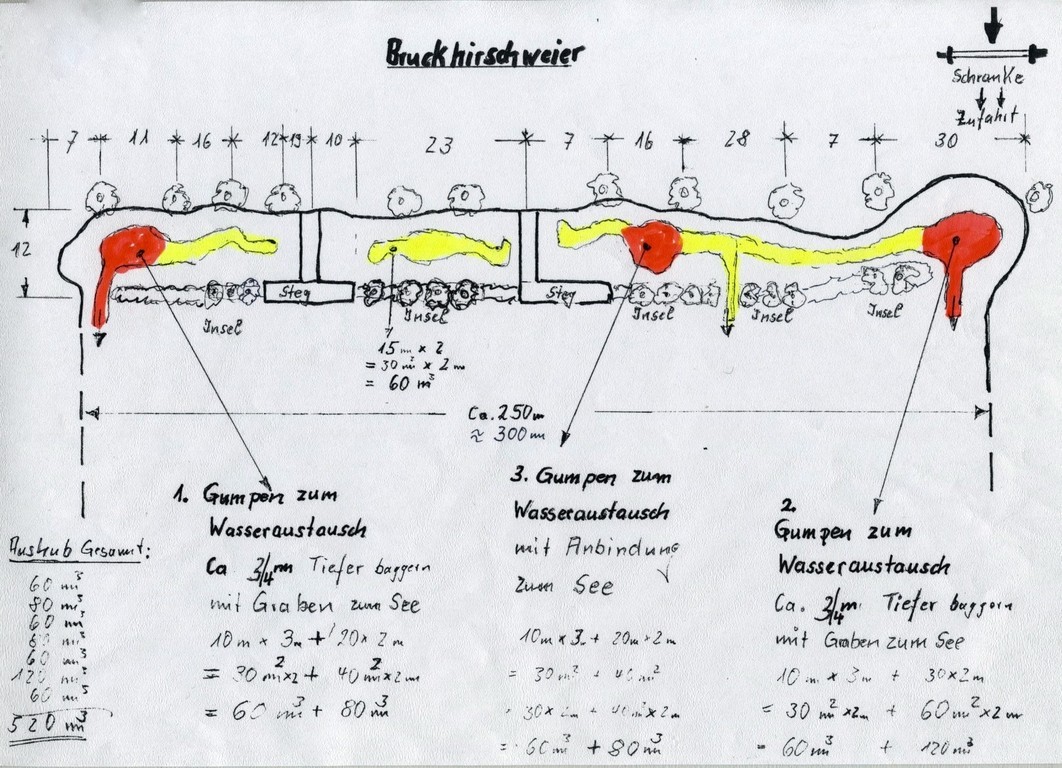 Bruckhirschweier
Schranke
Zufahrt
7 11 16 12 19 10 23 7 16 28 7 30
12
Steg
Steg
Insel
Insel
Insel
Insel
Insel
15 m x 2
= 30 m² x 2 m
= 60 m³
Ca. 250 m
≈ 300 m
1. Gumpen zum
Wasseraustausch
Ca 3/4 m Tiefer baggern
mit Graben zum See
10 m x 3 m + 20 x 2 m
= 30 m² x 2 + 40 m² x 2 m
= 60 m³ + 80 m³
3. Gumpen zum
Wasseraustausch
mit Anbindung
zum See
10 m x 3 + 20 m x 2 m
= 30 m² + 40 m²
30 x 2 m + 40 m² x 2 m
= 60 m³ + 80 m³
2.
Gumpen zum
Wasseraustausch
Ca. 3/4 m Tiefer baggern
mit Graben zum See
10 m x 3 m + 30 x 2 m
= 30 m² x 2 m + 60 m² x 2 m
= 60 m³ + 120 m³
Aushub Gesamt:
60 m³
80 m³
60 m³
m³
60 m³
120 m³
60 m³
520 m³